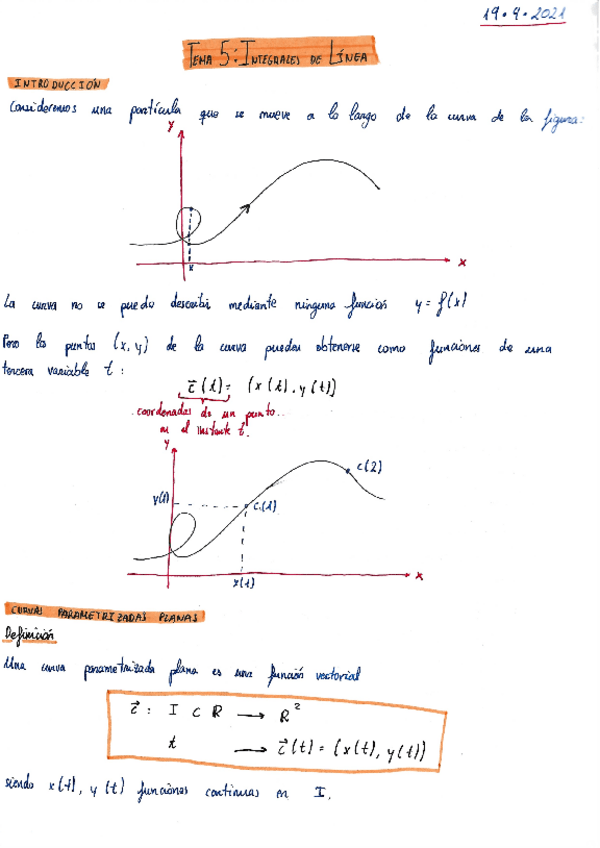 19·4·2021
TEMA 5: INTEGRALES DE LÍNEA
INTRODUCCIÓN
Consideremos una partícula que se mueve a lo largo de la curva de la figura:
y
x
x
La curva no se puede describir mediante ninguna función y = f(x)
Pero los puntos (x, y) de la curva pueden obtenerse como funciones de una
tercera variable t:
c⃗(t) = (x(t), y(t))
coordenadas de un punto
en el instante t.
y
c(2)
y(1)
c(1)
x
x(1)
CURVAS PARAMETRIZADAS PLANAS
Definición
Una curva parametrizada plana es una función vectorial
c⃗ : I ⊂ R → R²
t → c⃗(t) = (x(t), y(t))
siendo x(t), y(t) funciones continuas en I.